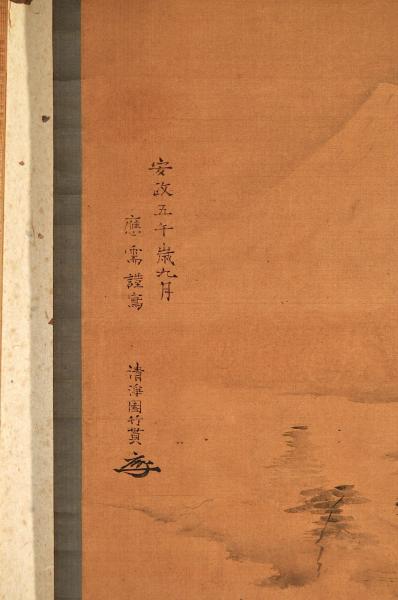 安政五午歳九月
應需謹寫
清海園竹貫